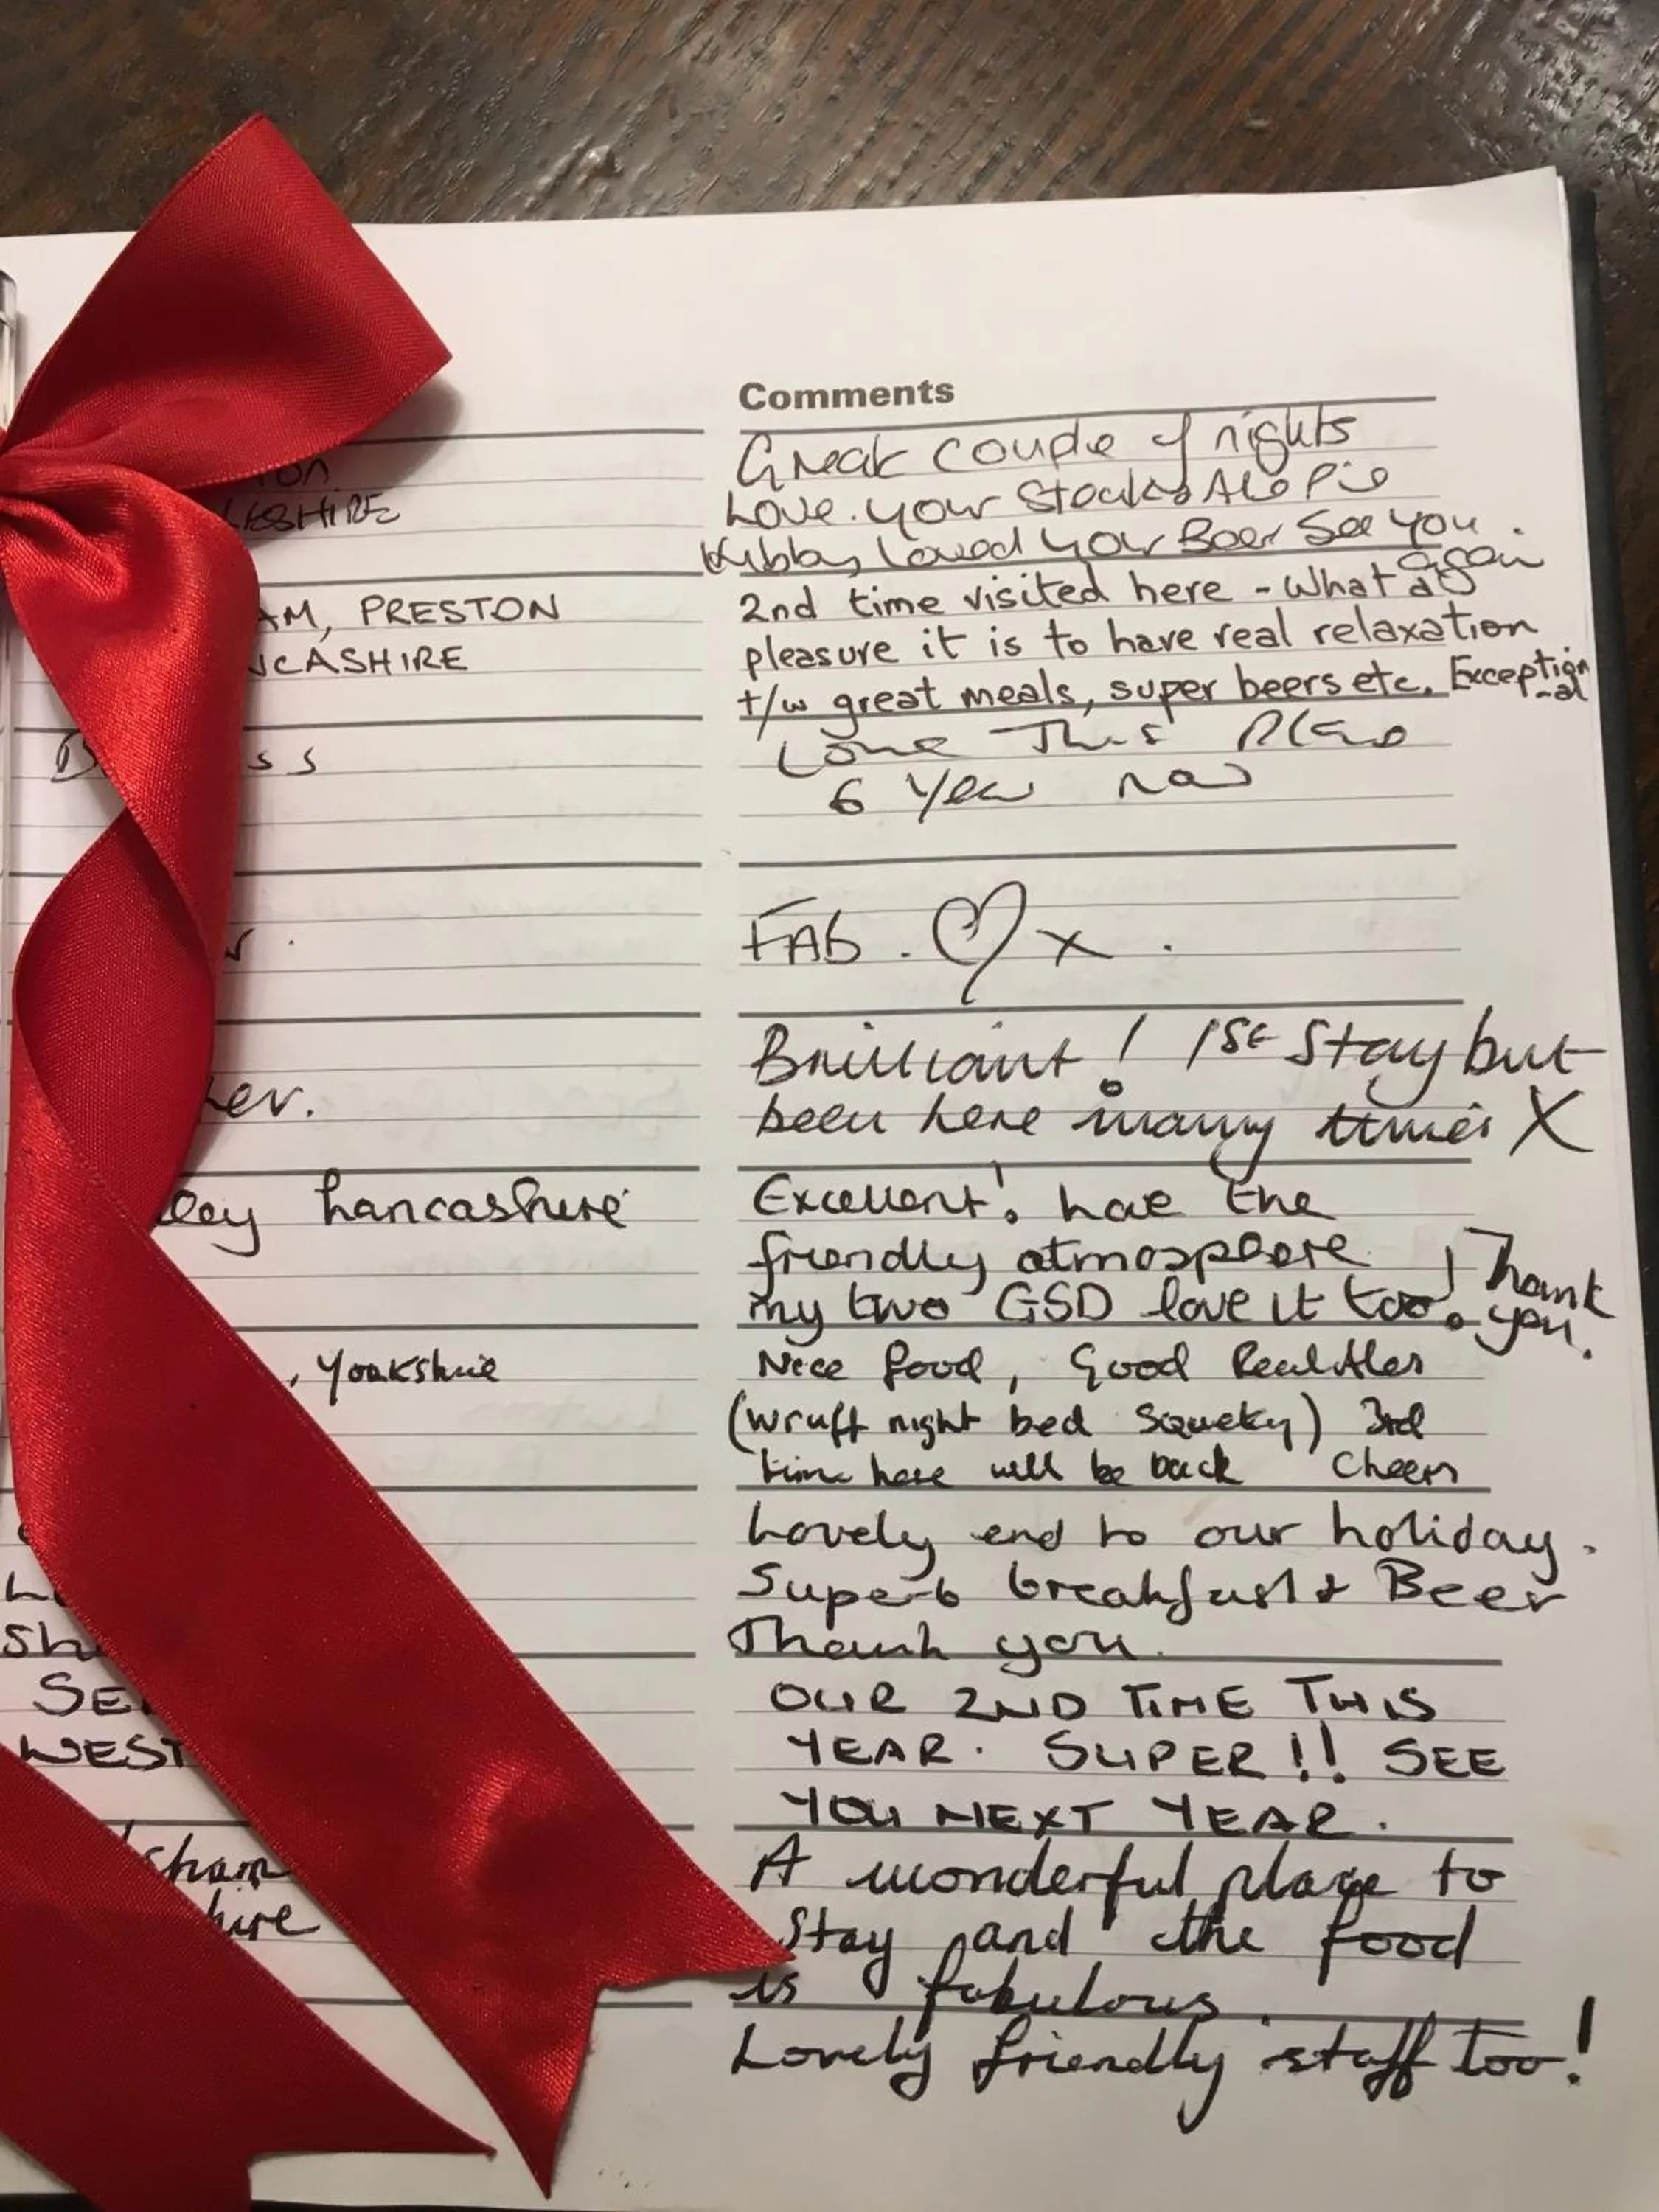 Comments
Great couple of nights
LESHIRE
Love your Steak & Ale Pie
Hubby Loved your Beer See You
again
AM, PRESTON
2nd time visited here - What a
NCASHIRE
pleasure it is to have real relaxation
t/w great meals, super beers etc. Exception
-al
Love This Place
ss
6 Year now
FAB. x.
Brilliant! 1st Stay but
been here many times X
ey Lancashire
Excellent! love the
friendly atmosphere
my two GSD love it too! Thank
you.
, Yorkshire
Nice food, Good Real Ales
(wruff night bed squeky) 3rd
time here will be back Cheers
Lovely end to our holiday.
Superb breakfast & Beer
Sh
Thank you.
SE
OUR 2ND TIME THIS
WEST
YEAR. SUPER!! SEE
YOU NEXT YEAR.
sham
A wonderful place to
hire
Stay and the food
is fabulous.
Lovely friendly staff too!